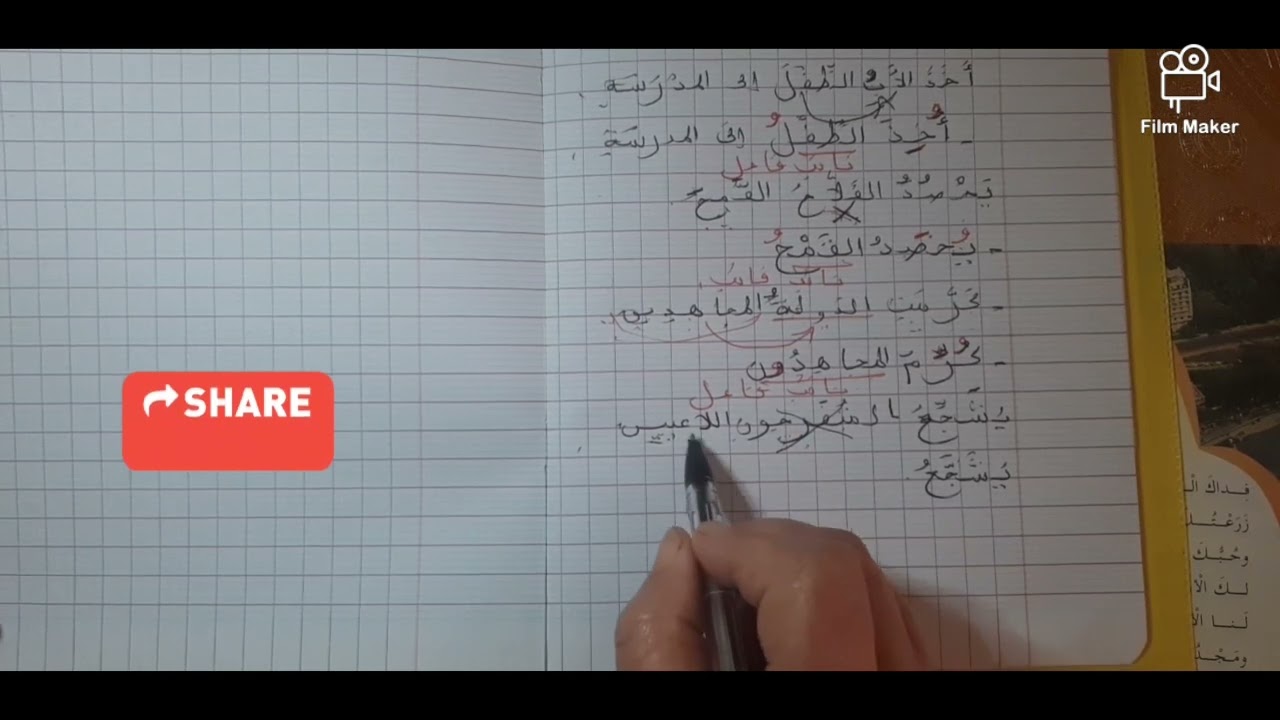 أَخَذَ الأبُ الطِّفْلَ إلى المدْرَسَةِ .
- أُخِذَ الطِّفْلُ إلىَ المدرسَةِ .
نائبُ فاعل
يَحْصُدُ الفَلاَّحُ القَمْحَ .
- يُحصَدُ القَمْحُ
نائب فاعل
- كَرَّمَتِ الدولَةُ المجاهدين .
- كُرِّمَ المجاهدُون
نائبُ فاعل
يُشَجِّعُ المتفرجون اللاعبين .
يُشَجَّعُ .
SHARE
Film Maker
فِداكَ الْ
زَرَعْتُ
وحُبُّكَ
لَكَ الْأ
لَنا الْأ
ومَجْدُ